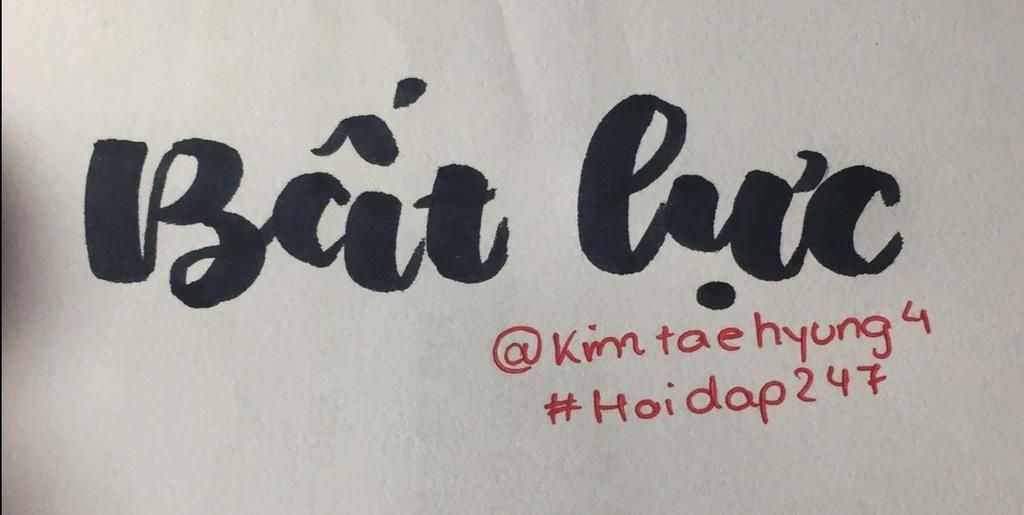 Bất lực
@Kimtaehyung4
#Hoidap247